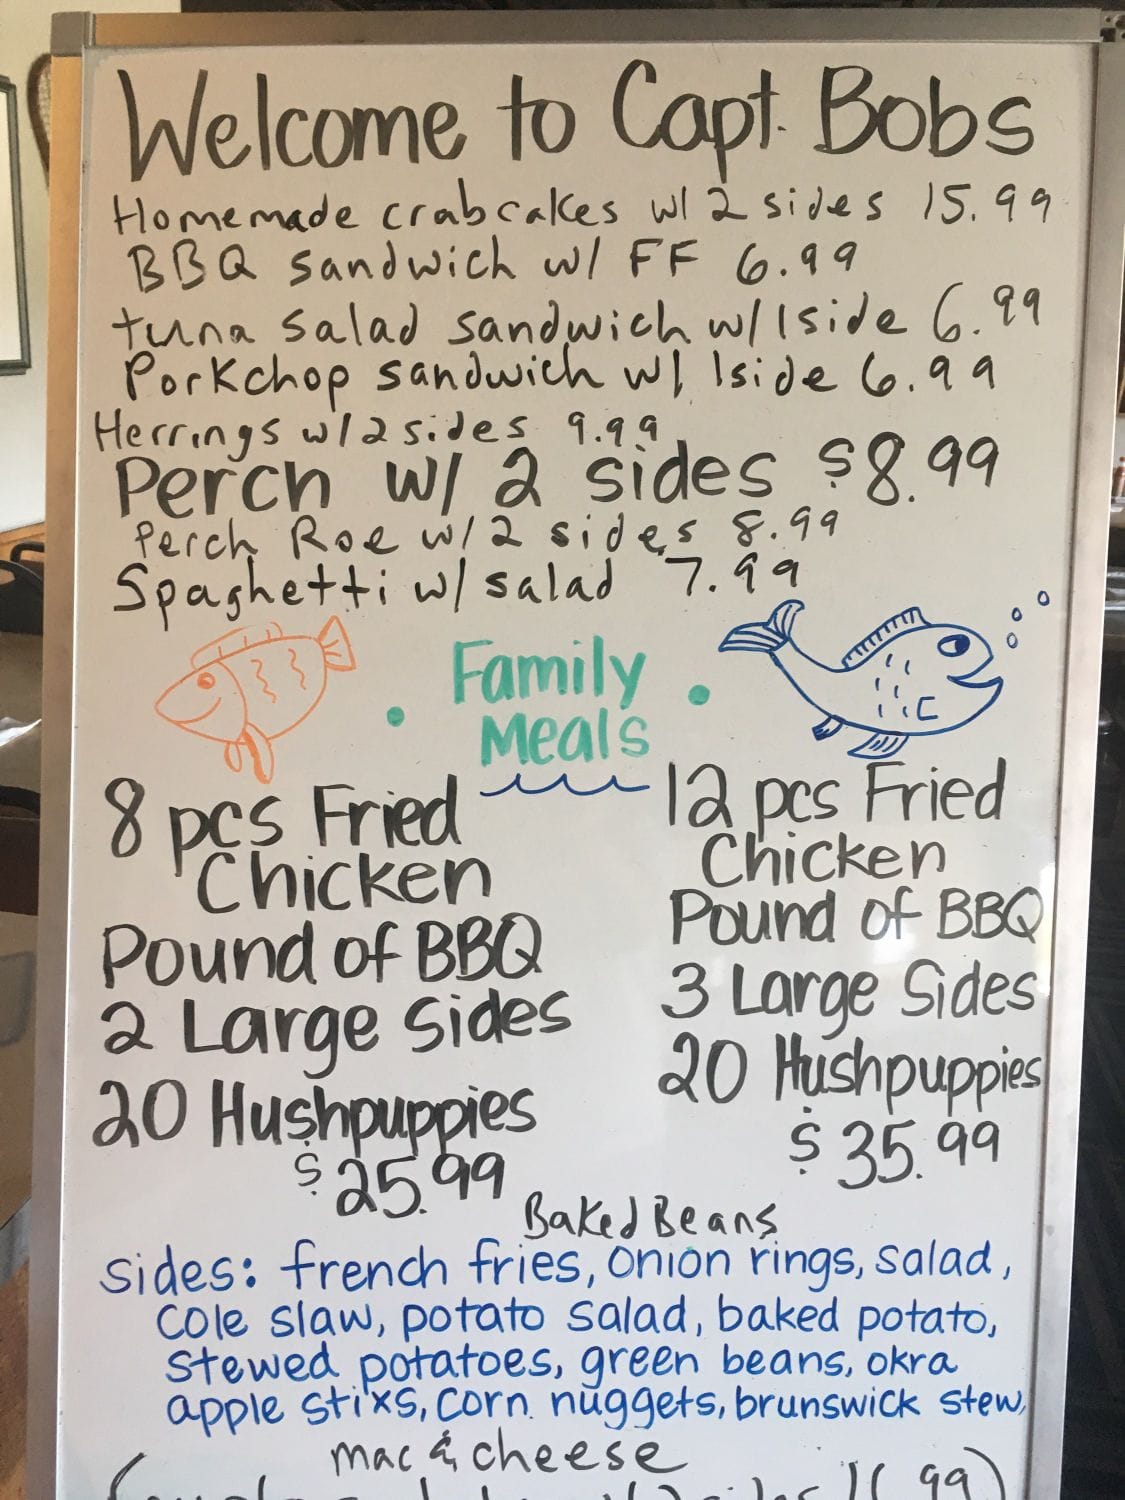 Welcome to Capt. Bobs
Homemade crabcakes w/ 2 sides 15.99
BBQ sandwich w/ FF 6.99
tuna salad sandwich w/ 1 side 6.99
Porkchop sandwich w/ 1 side 6.99
Herrings w/ 2 sides 9.99
Perch w/ 2 sides $8.99
Perch Roe w/ 2 sides 8.99
Spaghetti w/ salad 7.99
• Family •
Meals
8 pcs Fried
Chicken
Pound of BBQ
2 Large Sides
20 Hushpuppies
$25.99
12 pcs Fried
Chicken
Pound of BBQ
3 Large Sides
20 Hushpuppies
$35.99
Baked Beans
sides: french fries, onion rings, salad,
cole slaw, potato salad, baked potato,
stewed potatoes, green beans, okra
apple stixs, corn nuggets, brunswick stew,
mac & cheese